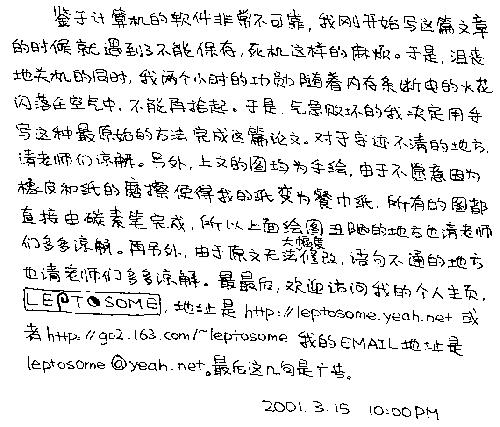 鉴于计算机的软件非常不可靠，我刚开始写这篇文章
的时候就遇到了不能保存，死机这样的麻烦。于是，沮丧
地关机的同时，我两个小时的功勋随着内存条断电的火花
闪落在空气中，不能再拾起。于是，气急败坏的我决定用手
写这种最原始的方法完成这篇论文。对于字迹不清的地方，
请老师们谅解。另外，上文的图均为手绘，由于不愿意因为
橡皮和纸的磨擦使得我的纸变为餐巾纸，所有的图都
直接由碳素笔完成，所以上面绘图丑陋的地方也请老师
们多多谅解。再另外，由于原文无法大幅度修改，语句不通的地方
也请老师们多多谅解。最最后，欢迎访问我的个人主页，
LEPTOSOME，地址是http://leptosome.yeah.net 或
者http://gc2.163.com/~leptosome 我的EMAIL地址是
leptosome@yeah.net。最后这几句是广告。
2001.3.15 10:00PM